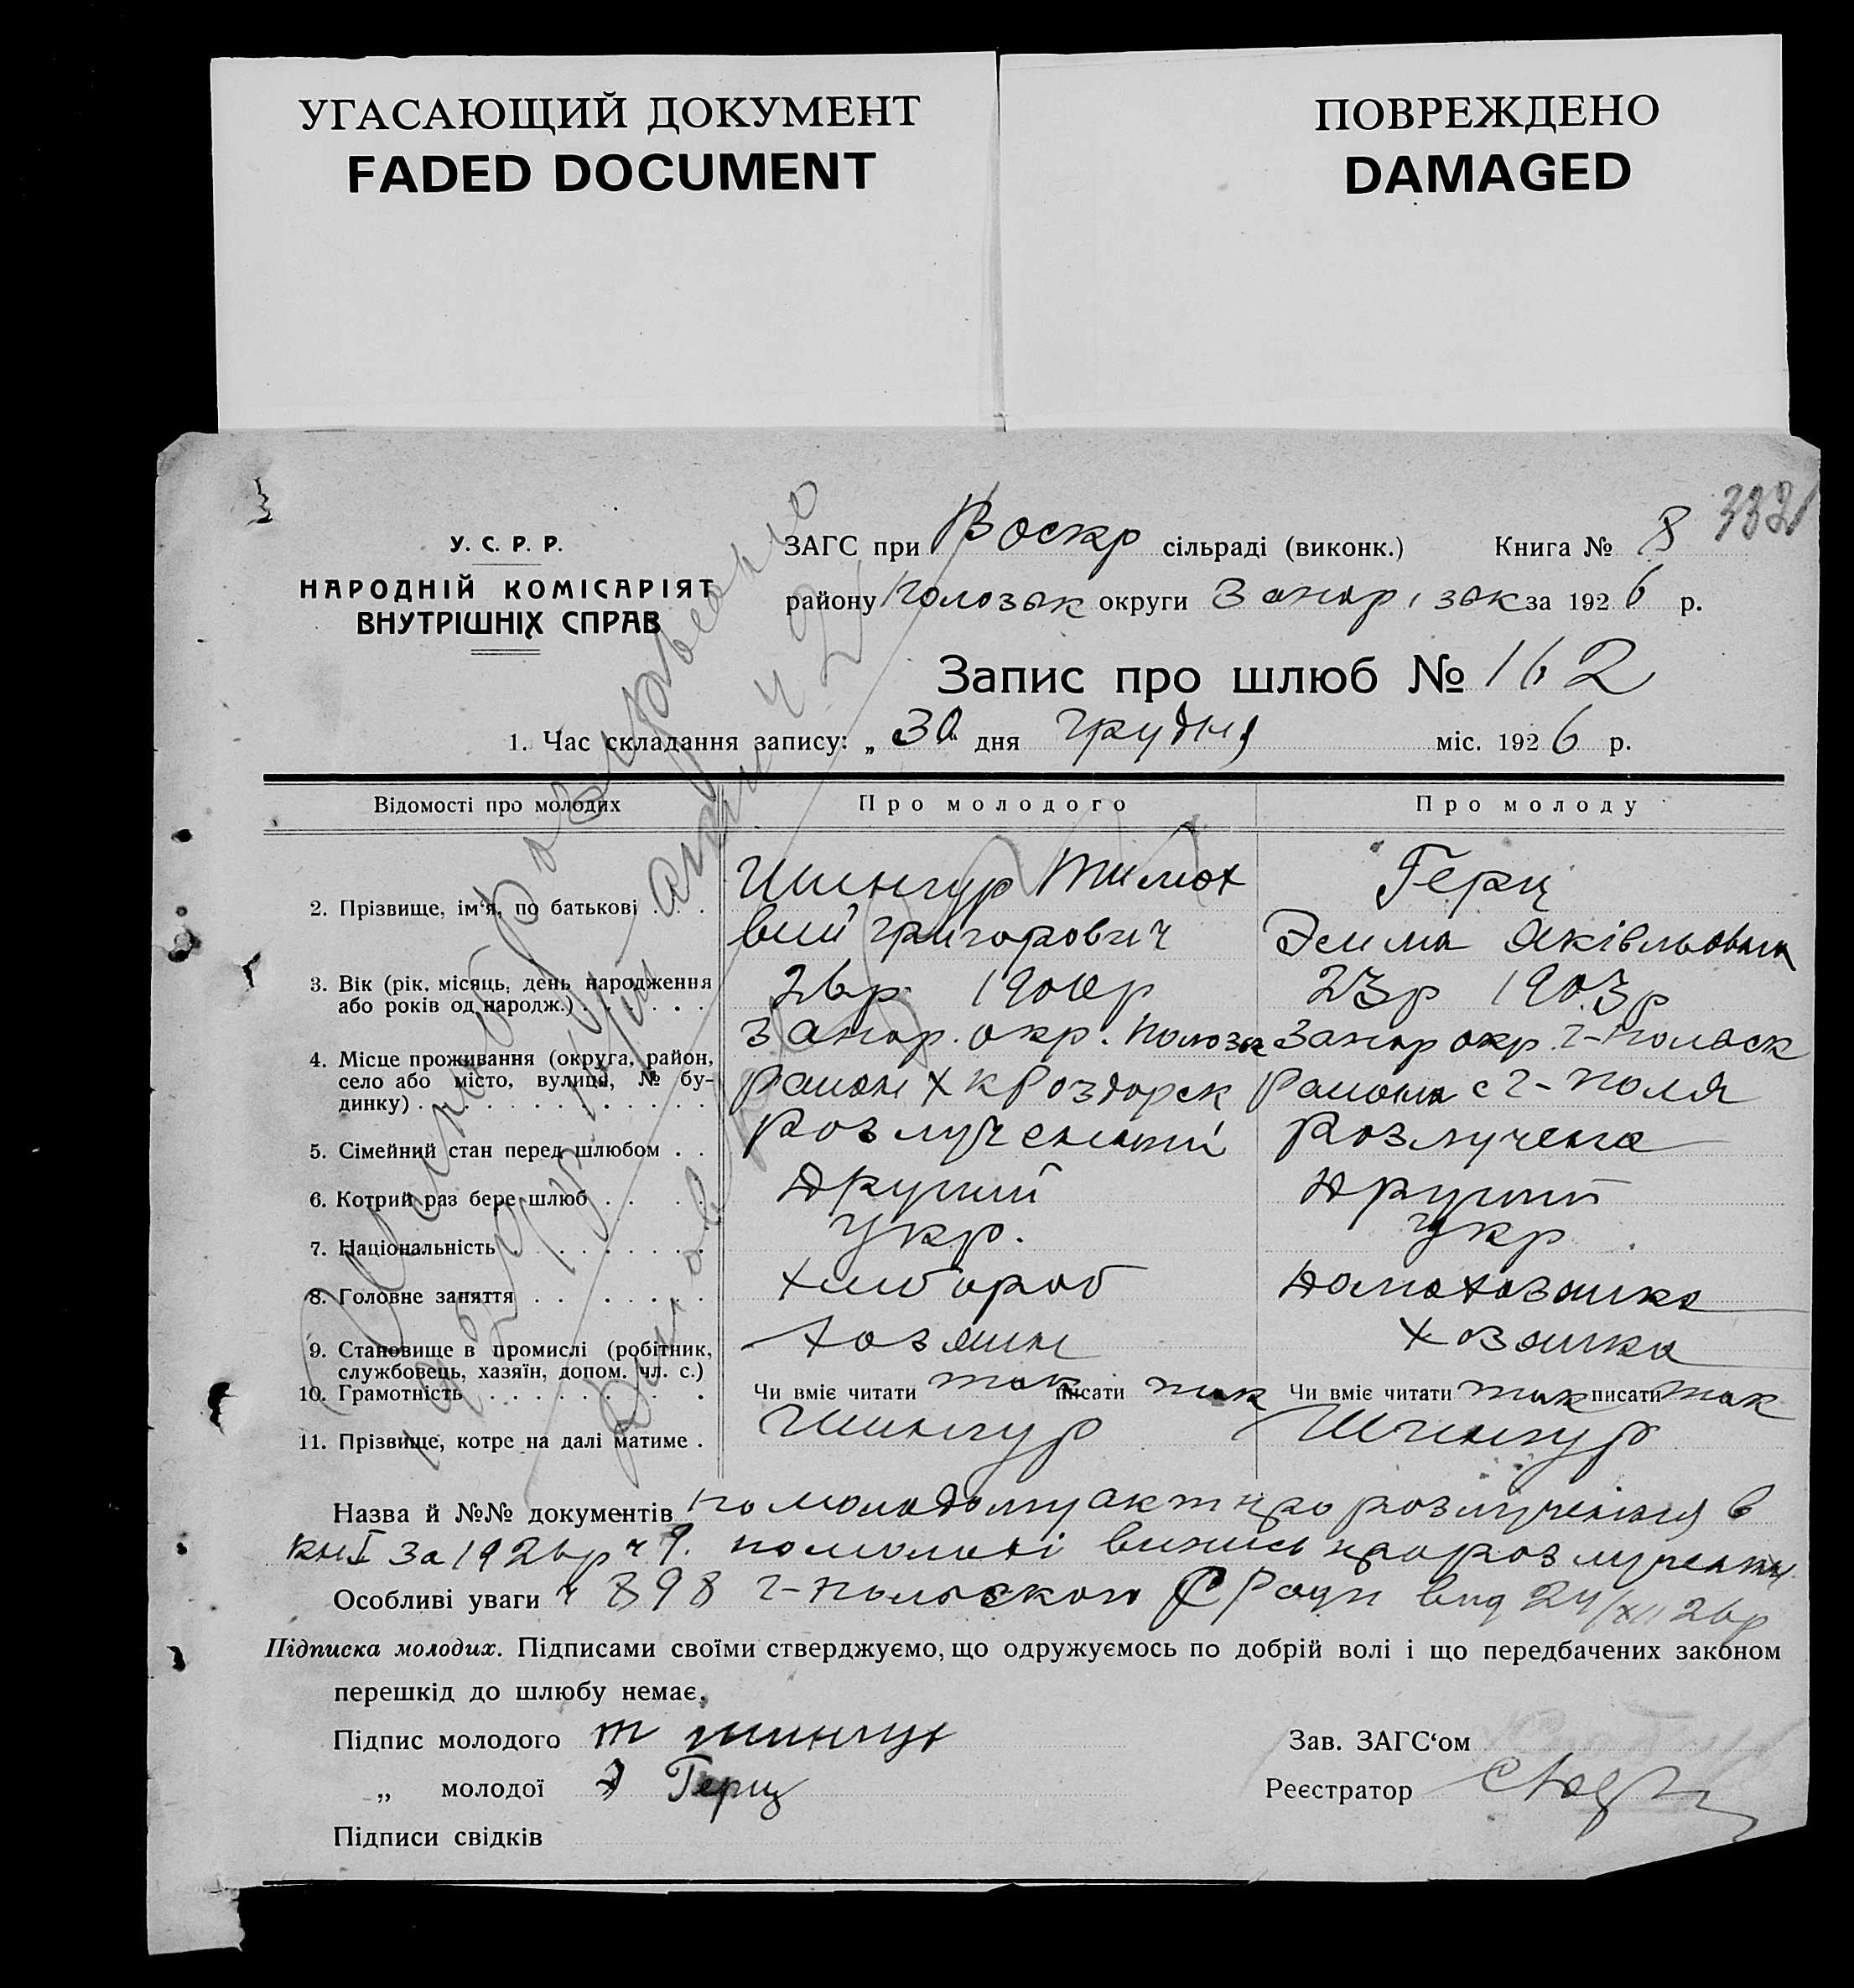 УГАСАЮЩИЙ ДОКУМЕНТ
FADED DOCUMENT
ПОВРЕЖДЕНО
DAMAGED
У. С. Р. Р.
НАРОДНІЙ КОМІСАРІЯТ
ВНУТРІШНІХ СПРАВ
332
ЗАГС при Воскр сільраді (виконк.) Книга № 8
району Пологзьк округи Запоріззк за 1926 р.
Запис про шлюб № 162
1. Час складання запису: „ 30 дня грудня міс. 1926 р.
Відомості про молодих Про молодого Про молоду
2. Прізвище, ім‘я, по батькові . . .
Шингур Тимох
вий Григорович
Герц
Яківльовна
3. Вік (рік, місяць, день народження
або років од народж.) . . . . . .
26р 1900р
23р 1903р
4. Місце проживання (округа, район,
село або місто, вулиця, № бу-
динку) . . . . . . . . . . . .
Запор. окр.
район х
Запор окр. Г-Польск
района с Г-Поля
5. Сімейний стан перед шлюбом . . розлучений розлучена
6. Котрий раз бере шлюб . . . . другий другий
7. Національність . . . . . . . . укр. укр
8. Головне заняття . . . . . . . хлибороб домохозяйка
9. Становище в промислі (робітник,
службовець, хазяїн, допом. чл. с.)
хозяин хозяйка
10. Грамотність . . . . . . . . . Чи вміє читати так писати так Чи вміє читати так писати так
11. Прізвище, котре на далі матиме . Шингур Шингур
Назва й №№ документів по молодому акт про розлучення в
кн I за 1926р ч 9. по молоді випись про розлучення
Особливі уваги ч 898 Г-Польскои Ради вид 24/XII 26р
Підписка молодих. Підписами своїми стверджуємо, що одружуємось по добрій волі і що передбачених законом
перешкід до шлюбу немає.
Підпис молодого Т Шингур Зав. ЗАГС‘ом
„ молодої Герц Реєстратор
Підписи свідків